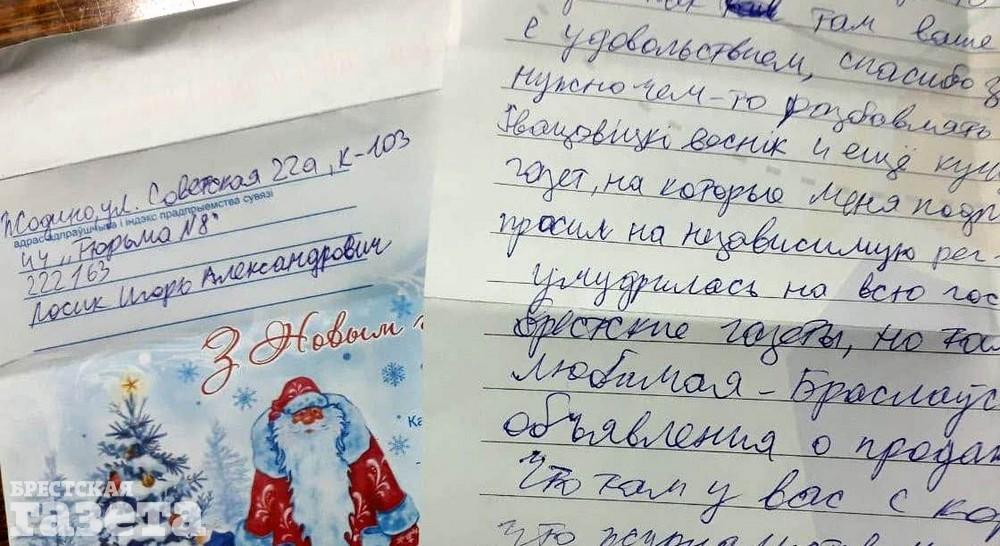 Жодино, ул. Советская 22а, к-103
адрас адпраўшчыка і індэкс прадпрыемства сувязі
ИЧ „Тюрьма №8"
222163
Лосик Игорь Александрович
З Новым
Ка
БРЕСТСКАЯ
газета
там ваше
с удовольствием, спасибо
нужно чем-то разбавлять
Iвацэвіцкі веснік и ещё
газет, на которые меня подп
просил на независимую рег-
умудрилась на всю гос
Брестские газеты, но
любимая - Браслаўс
объявления о продаж
Что там у вас с кор
что